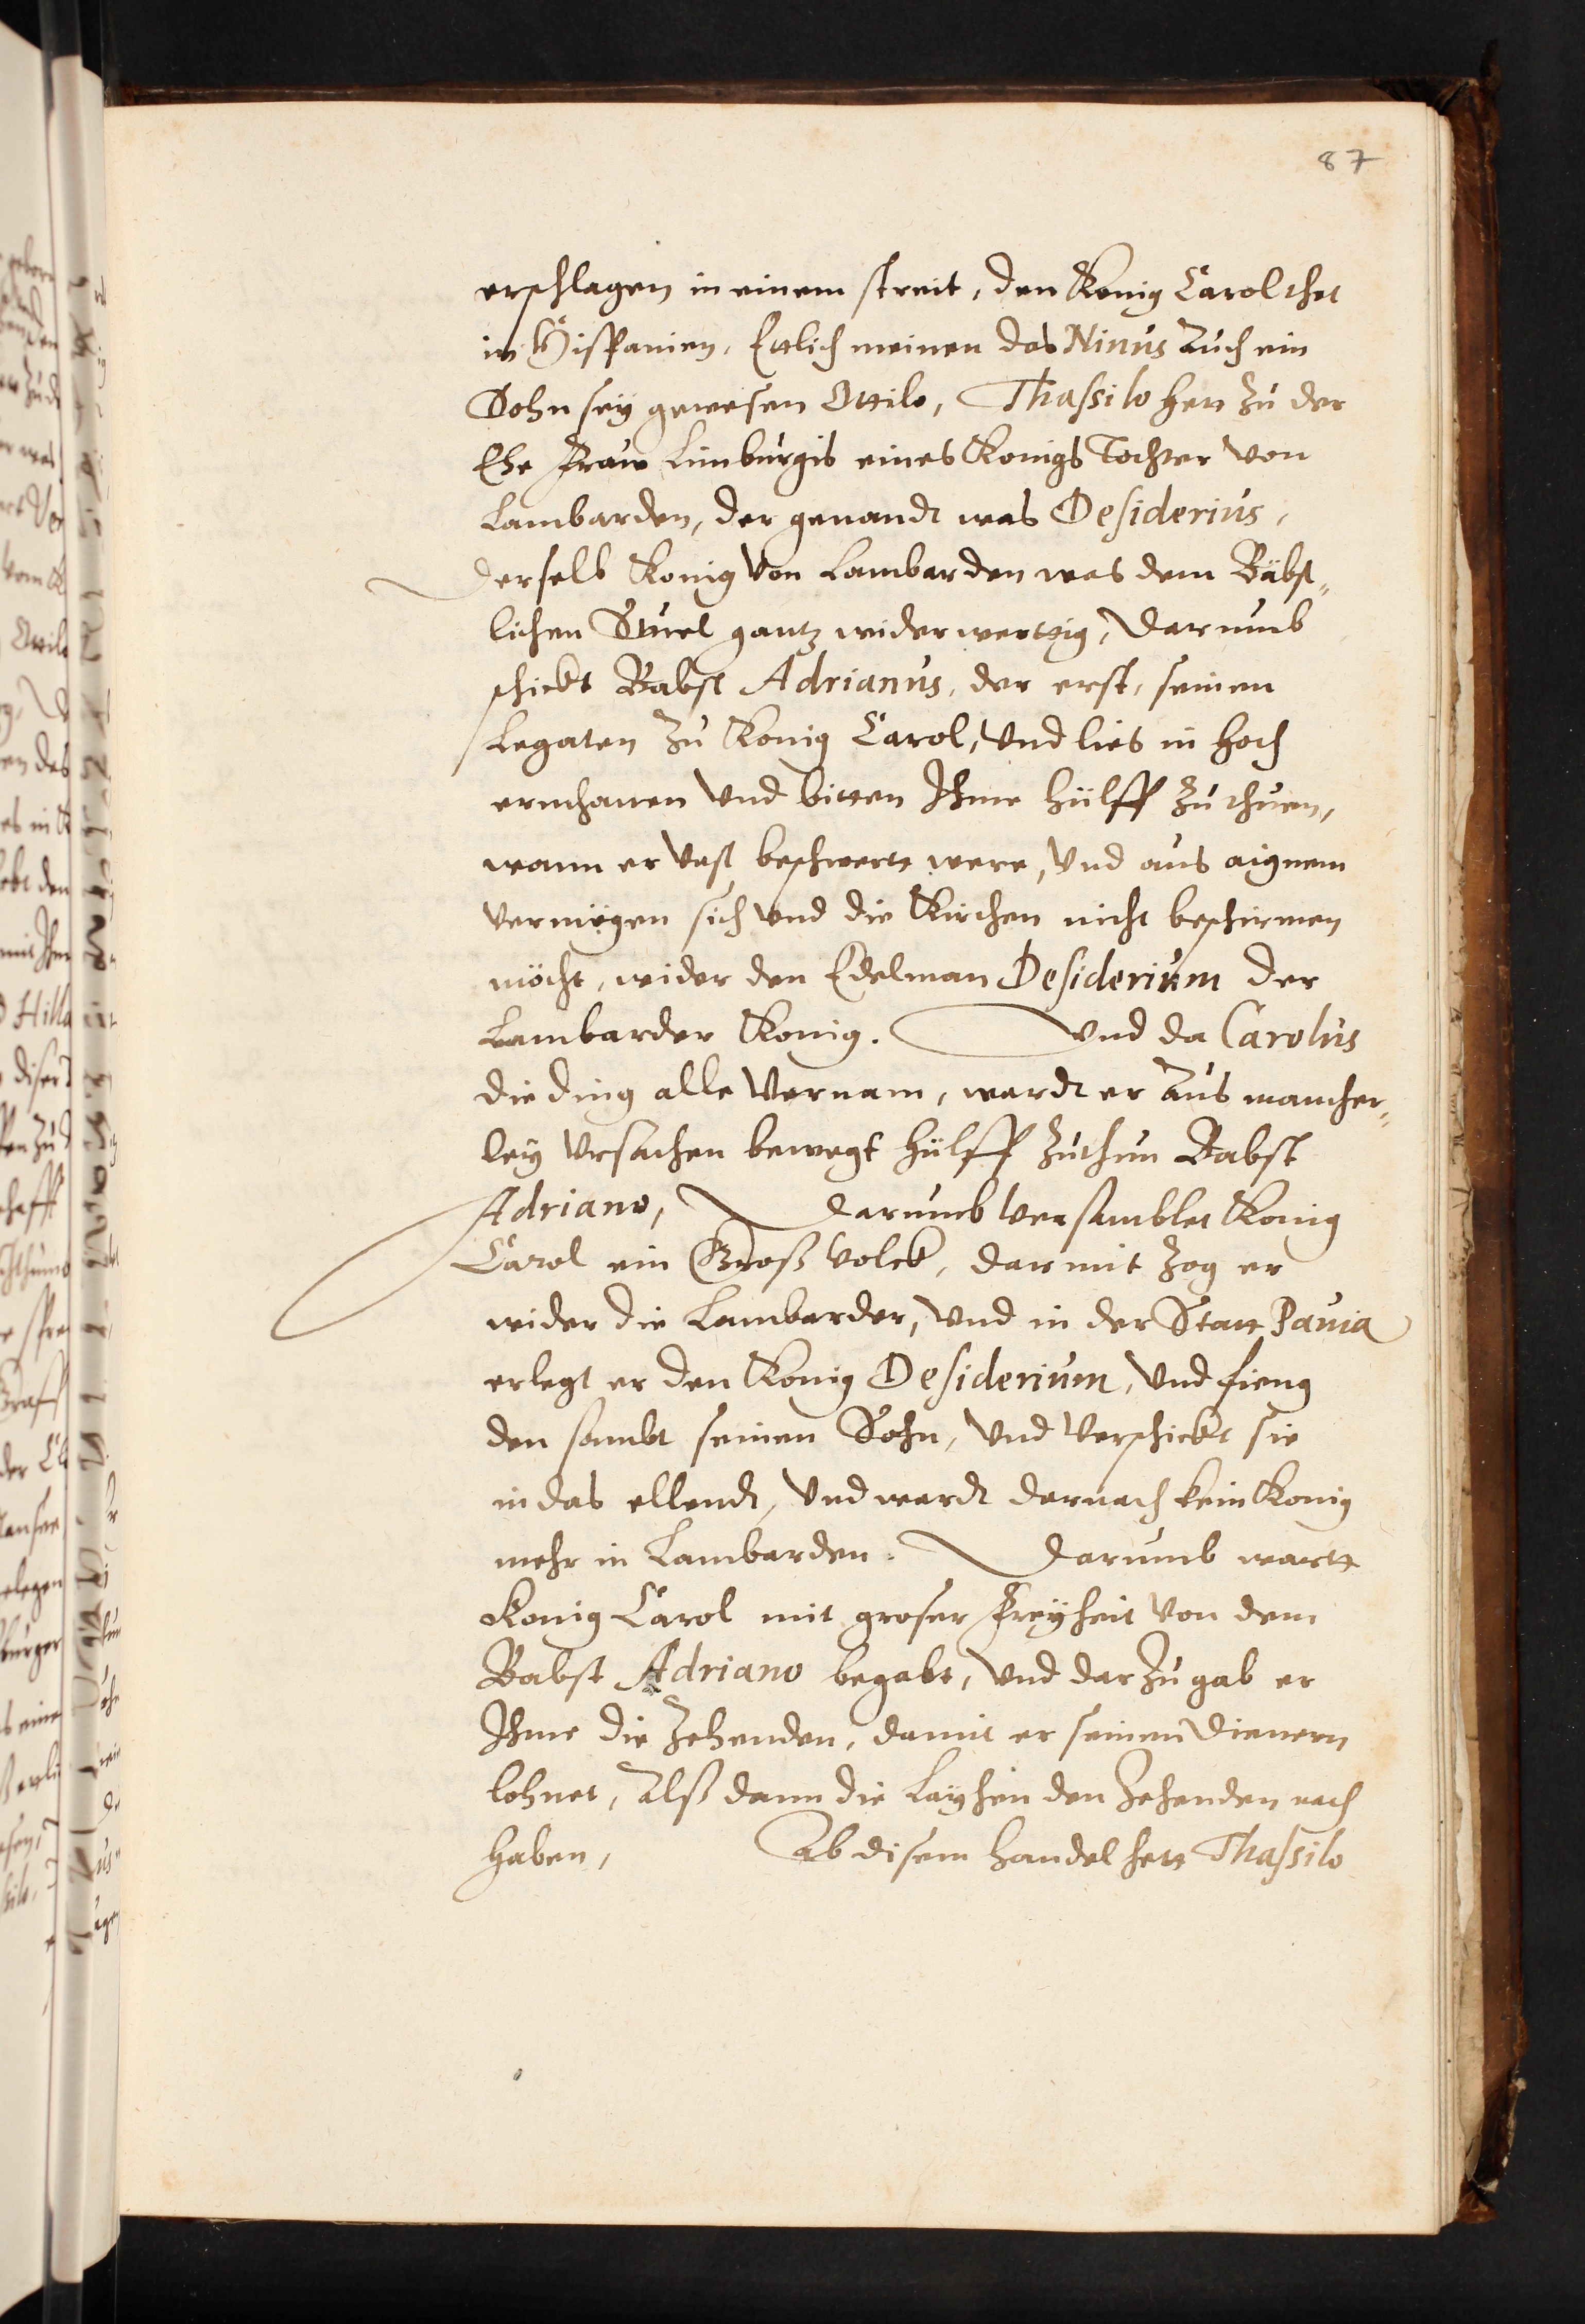 87
erschlagen in einem streit, den Konig Carol thet
in Hispanien, Ettlich meinen das Ninus auch ein
Sohn sey gewesen Ottilo, Thassilo hett zu der
Ehe Fraw Limburgis eines Konigs Tochter von
Lambarden, der genandt was Desiderius,
derselb Konig von Lambarden was dem Bäbst„
lichen Stuel gantz widerwertig, darumb
schickt Babst Adrianus, der erst, seinen
Legaten zu Konig Carol, und lies in hoch
ermhanen und bitten Ihme hülff zu thuen,
wann er vast beschwert were, und aus aignem
vermögen sich und die Kirchen nicht beschirmen
möcht, wider den Edelman Desiderium der
Lambarder Konig. und da Carolus
die ding alle vernam, wardt er aus mancher„
ley ursachen bewegt hülff zuthun Babst
Adriano, darumb versamblet Konig
Carol ein Groß volck, darmit zog er
wider die Lambarder, und in der Statt Pauia
erlegt er den Konig Desiderium, und fieng
den sambt seinen Sohn, und verschickt sie
in das ellendt, und wardt darnach kein Konig
mehr in Lambarden. darumb wartt
Konig Carol mit groser Freyheit von dem
Babst Adriano begabt, und darzu gab er
Ihme die Zehenden, damit er seinen dienern
lohnet, Alß dann die Layhen den Zehenden noch
haben, Ab disem handel hett Thassilo